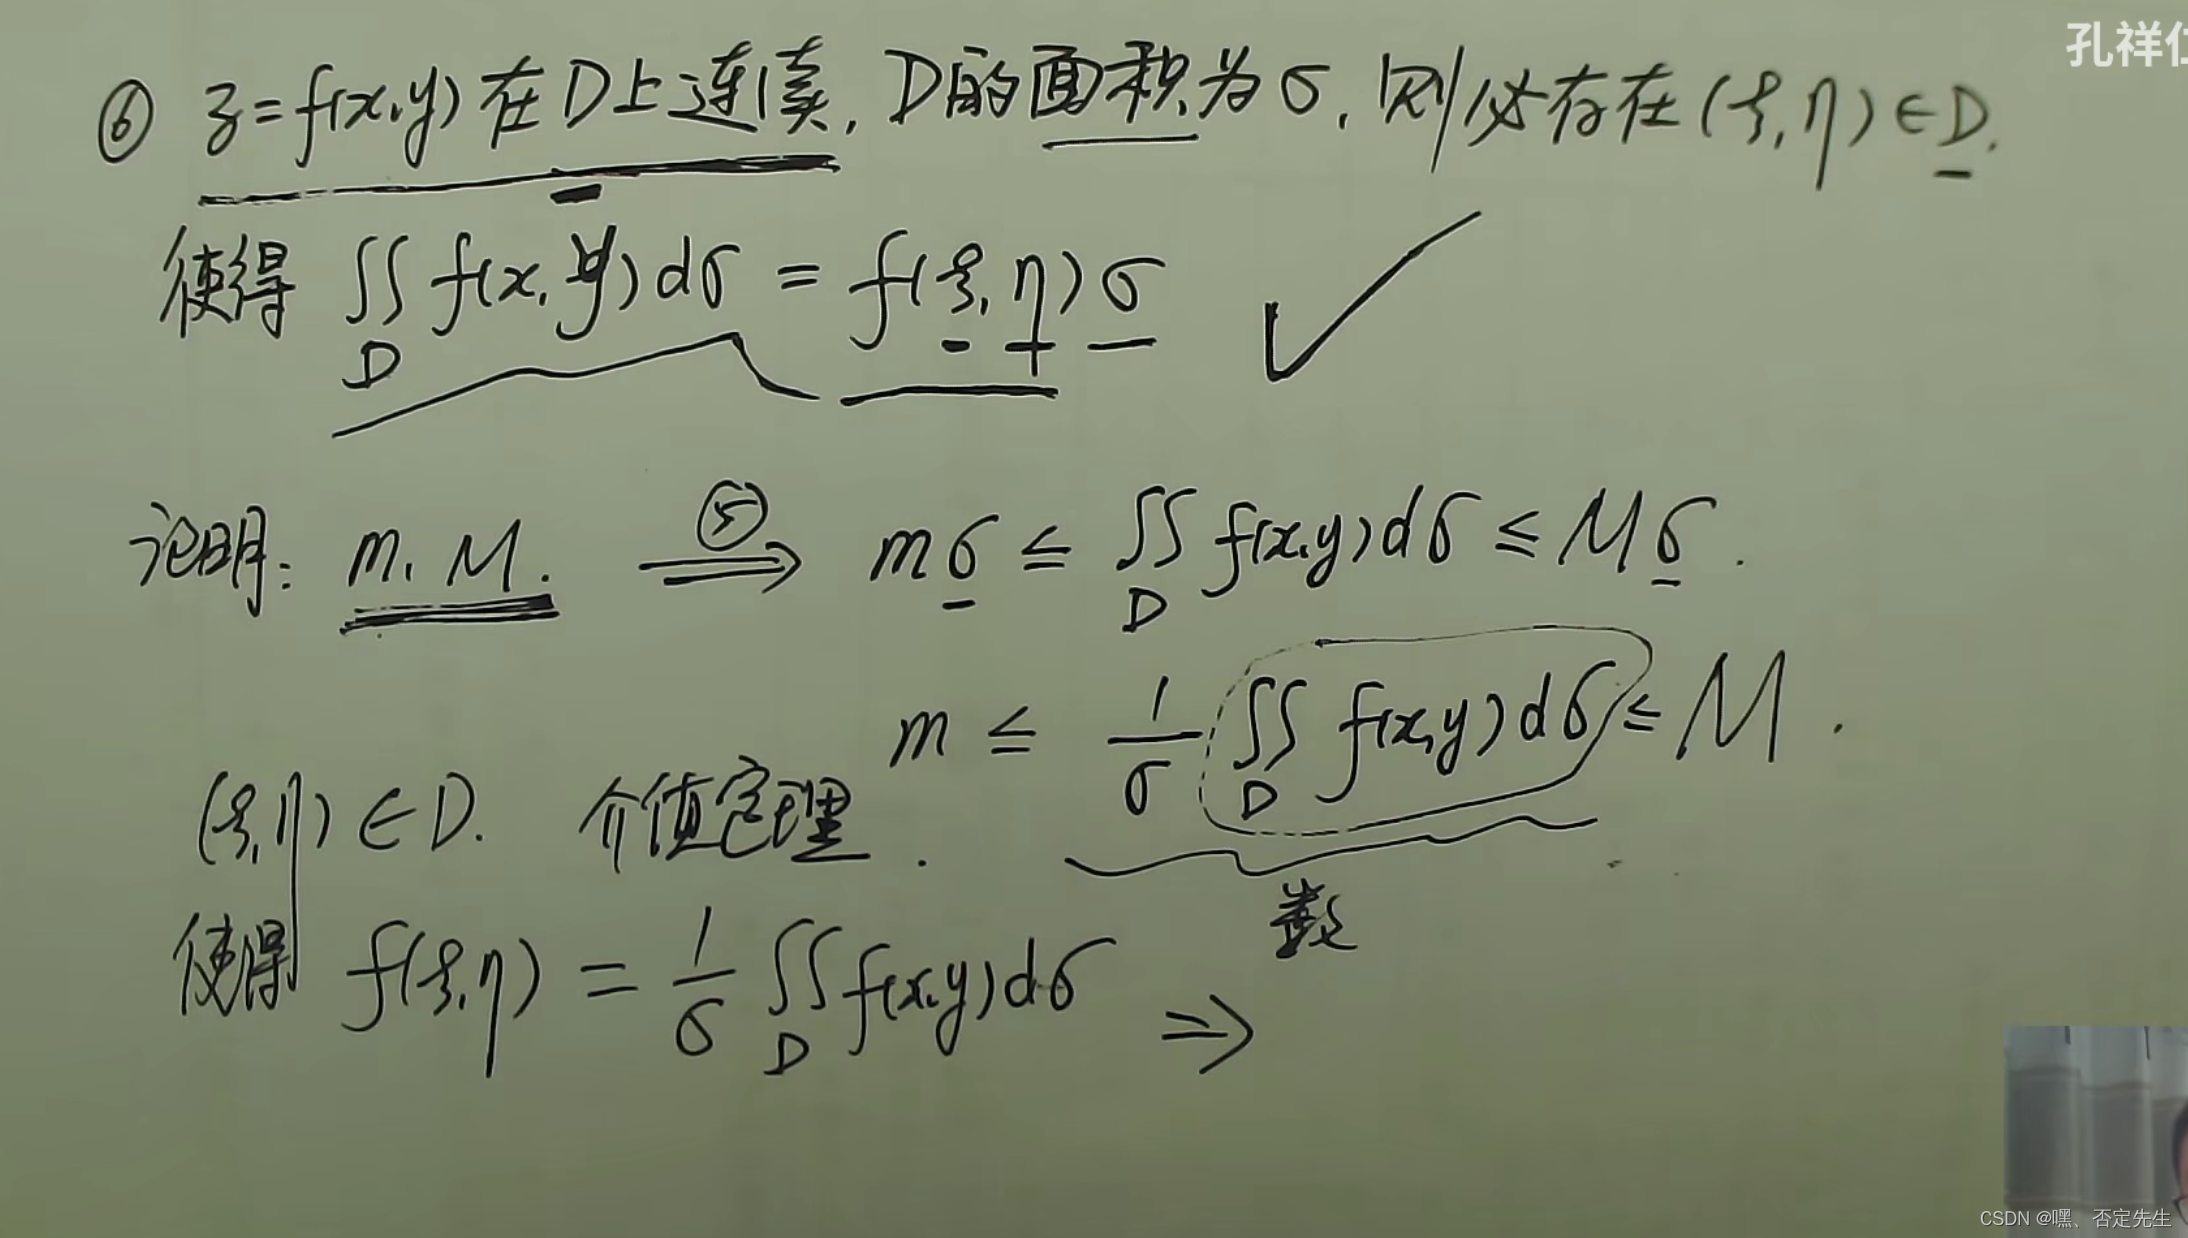 孔祥仁
⑥ z=f(x,y)在D上连续,D的面积为σ,则必存在(ξ,η)∈D.
使得 ∬_D f(x,y)dσ = f(ξ,η)σ ✓
证明: m, M. ⑤⟹ mσ ≤ ∬_D f(x,y)dσ ≤ Mσ.
m ≤ 1/σ ∬_D f(x,y)dσ ≤ M.
数
(ξ,η)∈D. 介值定理.
使得 f(ξ,η) = 1/σ ∬_D f(x,y)dσ ⟹
CSDN @嘿、否定先生